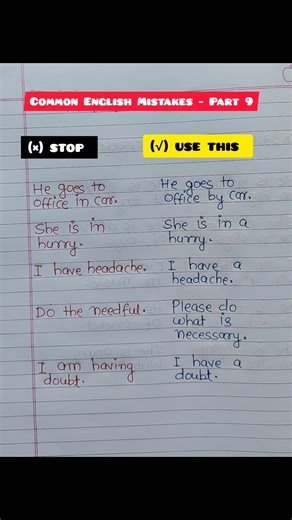 COMMON ENGLISH MISTAKES - PART 9
(×) STOP
(√) USE THIS
He goes to
office in car.
He goes to
office by car.
She is in
hurry.
She is in a
hurry.
I have headache.
I have a
headache.
Do the needful.
Please do
what is
necessary.
I am having
doubt.
I have a
doubt.